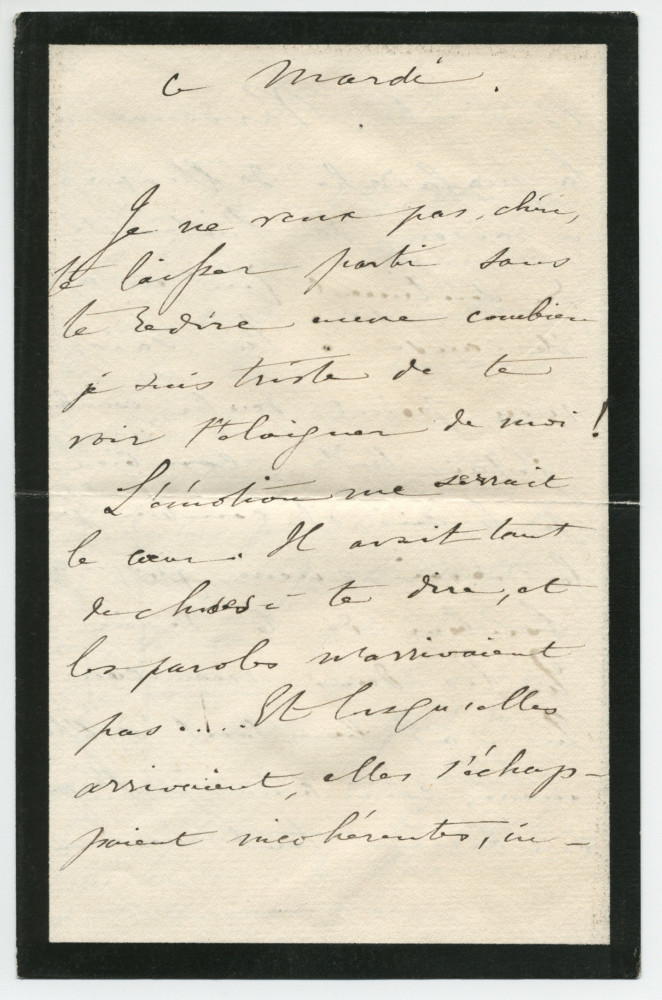 ce Mardi.
Je ne veux pas, chéri,
te laisser partir sans
te redire encore combien
je suis triste de te
voir t'éloigner de moi !
L'émotion me serrait
le cœur. Il avait tant
de choses à te dire, et
les paroles n'arrivaient
pas..... Et lorsqu'elles
arrivaient, elles s'échap-
paient incohérentes, in-